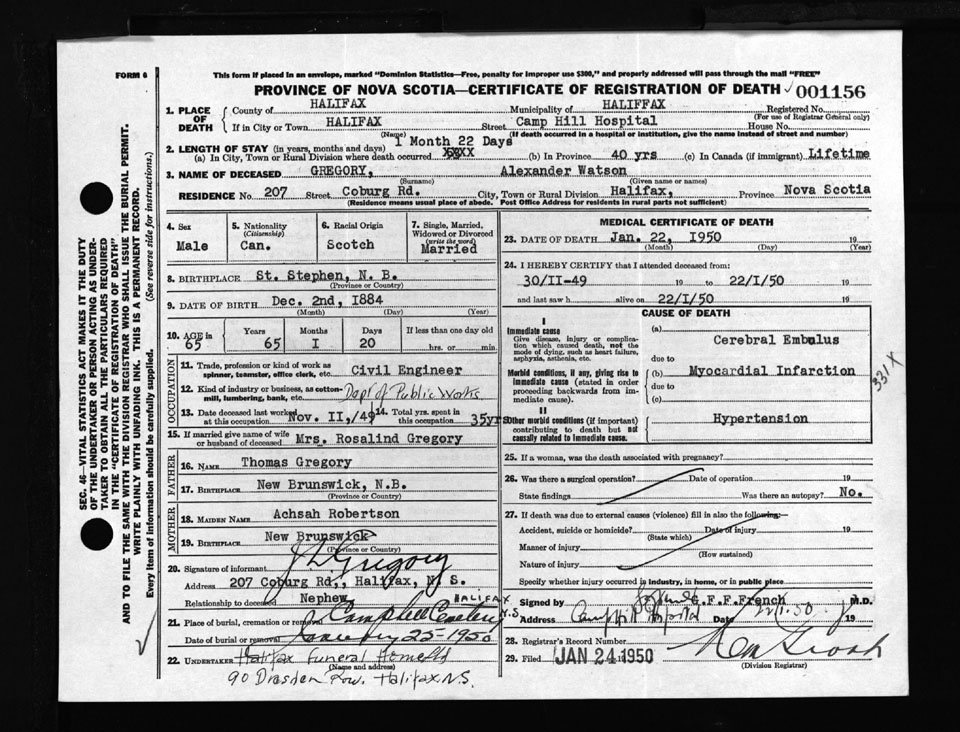 FORM 6
This form if placed in an envelope, marked "Dominion Statistics—Free, penalty for improper use $300," and properly addressed will pass through the mail "FREE"
PROVINCE OF NOVA SCOTIA—CERTIFICATE OF REGISTRATION OF DEATH 001156
1. PLACE OF DEATH
County of HALIFAX Municipality of HALIFFAX Registered No.
(For use of Registrar General only)
If in City or Town HALIFAX Street Camp Hill Hospital House No.
(Name) (If death occurred in a hospital or institution, give the name instead of street and number)
2. LENGTH OF STAY (in years, months and days) 1 Month 22 Days
(a) In City, Town or Rural Division where death occurred XXXX (b) In Province 40 yrs (c) In Canada (if immigrant) Lifetime
3. NAME OF DECEASED GREGORY, Alexander Watson
(Surname) (Given name or names)
RESIDENCE No. 207 Street Coburg Rd. City, Town or Rural Division Halifax, Province Nova Scotia
(Residence means usual place of abode. Post Office Address for residents in rural parts not sufficient)
4. Sex Male
5. Nationality (Citizenship) Can.
6. Racial Origin Scotch
7. Single, Married, Widowed or Divorced (write the word) Married
8. BIRTHPLACE St. Stephen, N. B.
(Province or Country)
9. DATE OF BIRTH Dec. 2nd, I884
(Month) (Day) (Year)
10. AGE in 65 Years 65 Months I Days 20 If less than one day old hrs. or min.
OCCUPATION
11. Trade, profession or kind of work as spinner, teamster, office clerk, etc. Civil Engineer
12. Kind of industry or business, as cotton-mill, lumbering, bank, etc. Dept of Public Works
13. Date deceased last worked at this occupation Nov. II,/49 14. Total yrs. spent in this occupation 35yrs
15. If married give name of wife or husband of deceased Mrs. Rosalind Gregory
FATHER
16. NAME Thomas Gregory
17. BIRTHPLACE New Brunswick, N.B.
(Province or Country)
MOTHER
18. MAIDEN NAME Achsah Robertson
19. BIRTHPLACE New Brunswick
(Province or Country)
20. Signature of informant Gregory
Address 207 Coburg Rd., Halifax, N. S.
Relationship to deceased Nephew
21. Place of burial, cremation or removal Camphill Cemetery HALIFAX N.S.
Date of burial or removal January 25-1950
22. UNDERTAKER Halifax Funeral Home Ltd
(Name and address)
90 Dresden Row. Halifax N.S.
MEDICAL CERTIFICATE OF DEATH
23. DATE OF DEATH Jan. 22, I950 19
(Month) (Day) (Year)
24. I HEREBY CERTIFY that I attended deceased from:
30/II-49 19 to 22/I/50 19
and last saw h alive on 22/I/50 19
CAUSE OF DEATH
I
Immediate cause
Give disease, injury or complication which caused death, not the mode of dying, such as heart failure, asphyxia, asthenia, etc.
(a) Cerebral Embulus
due to
Morbid conditions, if any, giving rise to immediate cause (stated in order proceeding backwards from immediate cause).
(b) Myocardial Infarction
due to
(c)
331X
II
Other morbid conditions (if important) contributing to death but not causally related to immediate cause.
Hypertension
25. If a woman, was the death associated with pregnancy?
26. Was there a surgical operation? Date of operation 19
State findings Was there an autopsy? No.
27. If death was due to external causes (violence) fill in also the following:—
Accident, suicide or homicide? Date of injury 19
(State which)
Manner of injury
(How sustained)
Nature of injury
Specify whether injury occurred in industry, in home, or in public place
Signed by G.F.F.French M.D.
Address Camp Hill Hospital Date 19
28. Registrar's Record Number
29. Filed JAN 24 1950
(Division Registrar)
SEC. 46—VITAL STATISTICS ACT MAKES IT THE DUTY
OF THE UNDERTAKER OR PERSON ACTING AS UNDER-
TAKER TO OBTAIN ALL THE PARTICULARS REQUIRED
IN THE "CERTIFICATE OF REGISTRATION OF DEATH"
AND TO FILE THE SAME WITH THE DIVISION REGISTRAR WHO SHALL ISSUE THE BURIAL PERMIT.
WRITE PLAINLY WITH UNFADING INK. THIS IS A PERMANENT RECORD.
Every item of information should be carefully supplied. (See reverse side for instructions.)